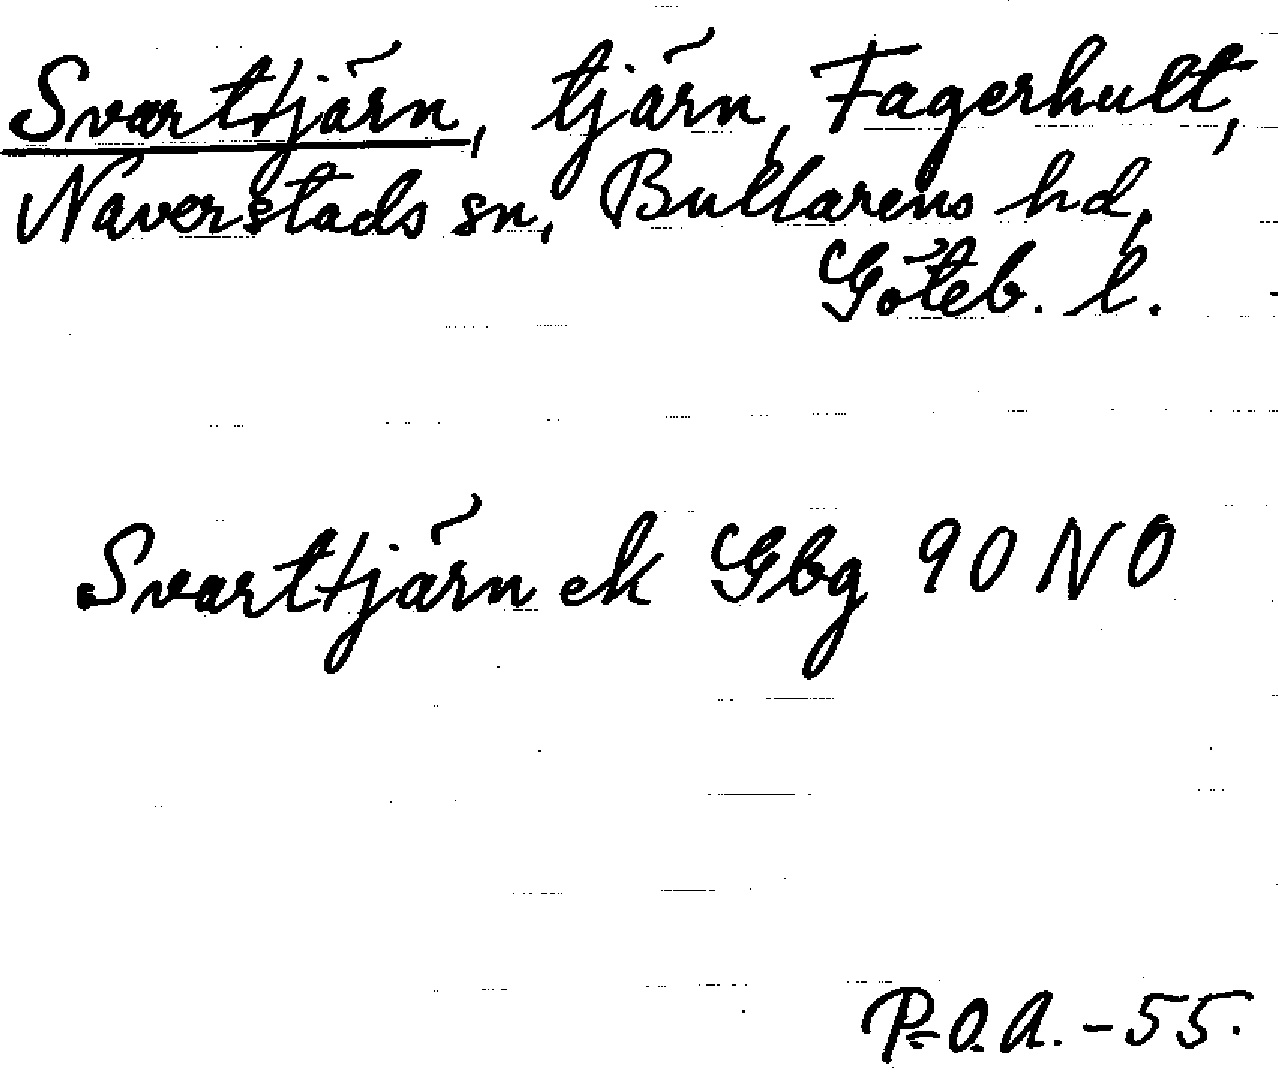 Svarttjärn, tjärn, Fagerhult,
Naverstads sn, Bullarens hd,
Göteb. l.
Svarttjärn ek Gbg 90 NO
P-O.A. -55.